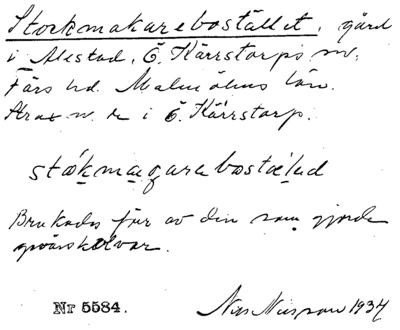 Stockmakarebostället, gård
i Alestad, Ö. Kärrstorps sn.
Färs hd. Malmöhus län.
Strax n. k. i Ö. Kärrstorp.
stɑkmɑgarabostɑ̈lad
Brukades förr av den som gjorde
Nr 5584.
Nils Nilsson 1934